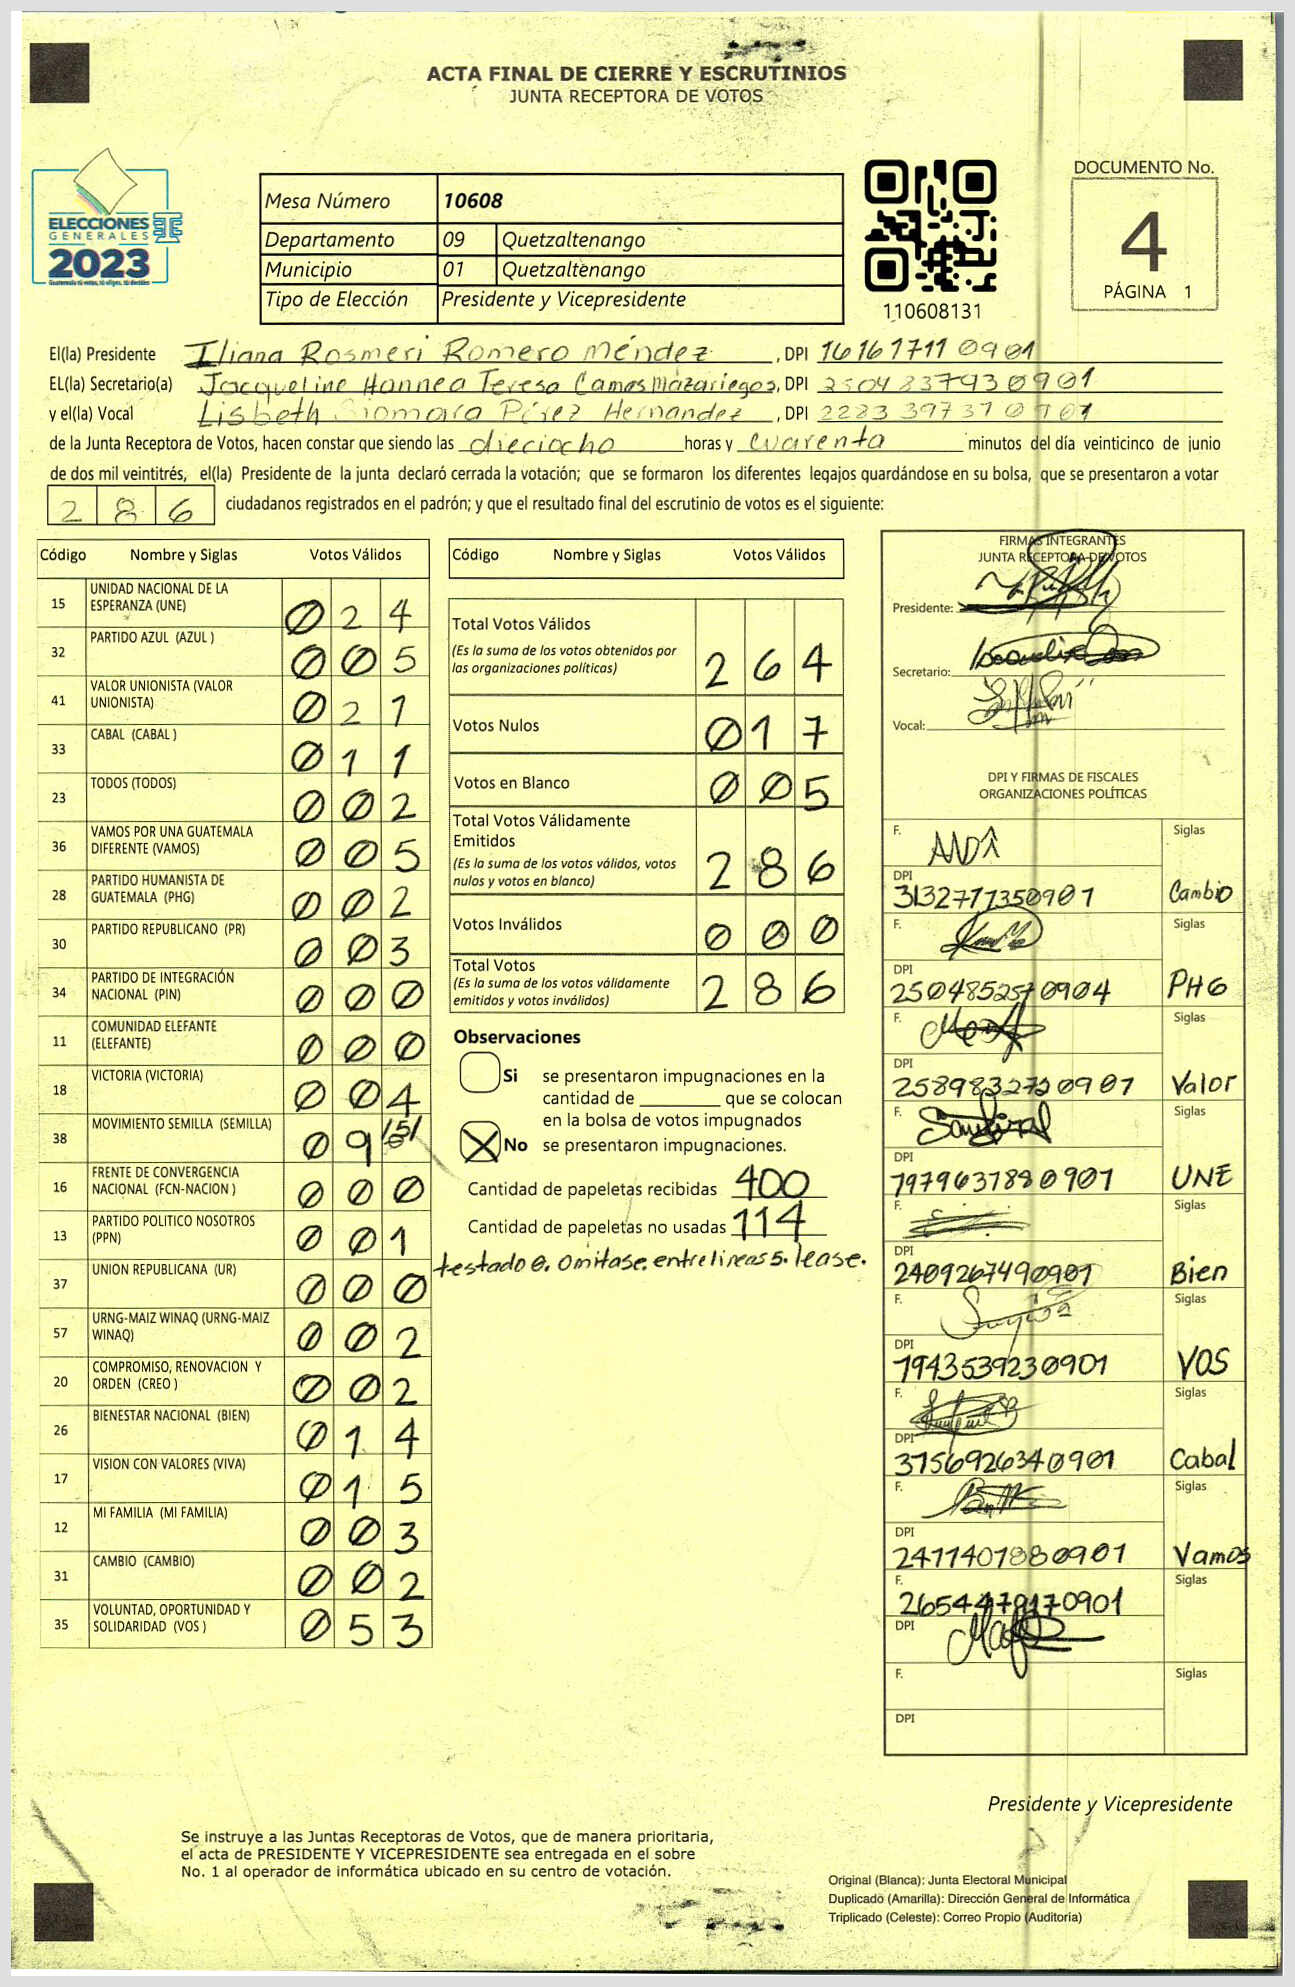 ACTA FINAL DE CIERRE Y ESCRUTINIOS
JUNTA RECEPTORA DE VOTOS
ELECCIONES
GENERALES
2023
Mesa Número 10608
Departamento 09 Quetzaltenango
Municipio 01 Quetzaltenango
Tipo de Elección Presidente y Vicepresidente
110608131
DOCUMENTO No.
4
PÁGINA 1
El(la) Presidente Iliana Rosmeri Romero Méndez, DPI 16161711 0901
EL(la) Secretario(a) Jacqueline Hannea Teresa Camas Mazariegos, DPI 2504 83793 0901
y el(la) Vocal Lisbeth Siomara Pérez Hernandez, DPI 2223 39737 0901
de la Junta Receptora de Votos, hacen constar que siendo las dieciocho horas y cuarenta minutos del día veinticinco de junio
de dos mil veintitrés, el(la) Presidente de la junta declaró cerrada la votación; que se formaron los diferentes legajos quardándose en su bolsa, que se presentaron a votar
286 ciudadanos registrados en el padrón; y que el resultado final del escrutinio de votos es el siguiente:
Código Nombre y Siglas Votos Válidos
15 UNIDAD NACIONAL DE LA ESPERANZA (UNE) 0 2 4
32 PARTIDO AZUL (AZUL ) 0 0 5
41 VALOR UNIONISTA (VALOR UNIONISTA) 0 2 1
33 CABAL (CABAL ) 0 1 1
23 TODOS (TODOS) 0 0 2
36 VAMOS POR UNA GUATEMALA DIFERENTE (VAMOS) 0 0 5
28 PARTIDO HUMANISTA DE GUATEMALA (PHG) 0 0 2
30 PARTIDO REPUBLICANO (PR) 0 0 3
34 PARTIDO DE INTEGRACIÓN NACIONAL (PIN) 0 0 0
11 COMUNIDAD ELEFANTE (ELEFANTE) 0 0 0
18 VICTORIA (VICTORIA) 0 0 4
38 MOVIMIENTO SEMILLA (SEMILLA) 0 9 /5/
16 FRENTE DE CONVERGENCIA NACIONAL (FCN-NACION ) 0 0 0
13 PARTIDO POLITICO NOSOTROS (PPN) 0 0 1
37 UNION REPUBLICANA (UR) 0 0 0
57 URNG-MAIZ WINAQ (URNG-MAIZ WINAQ) 0 0 2
20 COMPROMISO, RENOVACION Y ORDEN (CREO ) 0 0 2
26 BIENESTAR NACIONAL (BIEN) 0 1 4
17 VISION CON VALORES (VIVA) 0 1 5
12 MI FAMILIA (MI FAMILIA) 0 0 3
31 CAMBIO (CAMBIO) 0 0 2
35 VOLUNTAD, OPORTUNIDAD Y SOLIDARIDAD (VOS ) 0 5 3
Código Nombre y Siglas Votos Válidos
Total Votos Válidos 2 6 4
(Es la suma de los votos obtenidos por
las organizaciones políticas)
Votos Nulos 0 1 7
Votos en Blanco 0 0 5
Total Votos Válidamente
Emitidos 2 8 6
(Es la suma de los votos válidos, votos
nulos y votos en blanco)
Votos Inválidos 0 0 0
Total Votos 2 8 6
(Es la suma de los votos válidamente
emitidos y votos inválidos)
Observaciones
Si se presentaron impugnaciones en la
cantidad de ________ que se colocan
en la bolsa de votos impugnados
X No se presentaron impugnaciones.
Cantidad de papeletas recibidas 400
Cantidad de papeletas no usadas 114
testado 0. omitase. entrelineas 5. lease.
FIRMAS INTEGRANTES
JUNTA RECEPTORA DE VOTOS
Presidente:
Secretario:
Vocal:
DPI Y FIRMAS DE FISCALES
ORGANIZACIONES POLÍTICAS
F. Siglas
DPI
3132771350901 Cambio
F. Siglas
DPI
2504852570904 PHG
F. Siglas
DPI
2589832720901 Valor
F. Siglas
DPI
1979637880901 UNE
F. Siglas
DPI
2409267490901 Bien
F. Siglas
DPI
1943539230901 VOS
F. Siglas
DPI
3756926340901 Cabal
F. Siglas
DPI
2411401880901 Vamos
F. Siglas
2654479170901
DPI
F. Siglas
DPI
Presidente y Vicepresidente
Se instruye a las Juntas Receptoras de Votos, que de manera prioritaria,
el acta de PRESIDENTE Y VICEPRESIDENTE sea entregada en el sobre
No. 1 al operador de informática ubicado en su centro de votación.
Original (Blanca): Junta Electoral Municipal
Duplicado (Amarilla): Dirección General de Informática
Triplicado (Celeste): Correo Propio (Auditoria)